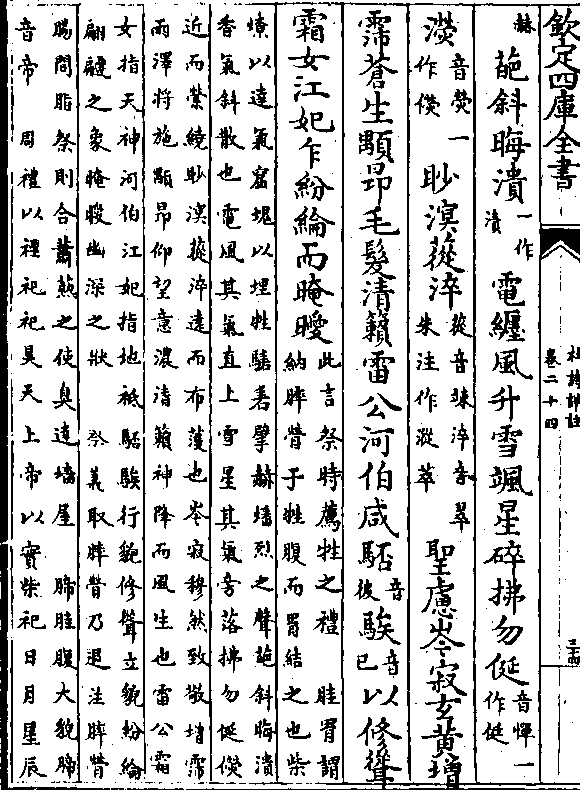 欽定四庫全書
杜詩詳註
卷二十四
赫葩斜晦潰一作漬電纏風升雪颯星碎拂勿侹音惲一作侹
濙音熒一作眇溟蓯淬蓯音竦淬音翠朱注作漎萃聖慮岑寂玄黃增
霈蒼生顒昂毛髮清籟雷公河伯咸駓音後騃音已以修聳
霜女江妃乍紛綸而晻曖此言祭時薦牲之禮 胜胃謂納膟膋于牲腹而胃結之也柴
燎以達氣窟塊以埋牲騞砉擘赫墦烈之聲葩斜晦潰
香氣斜散也電風其氣直上雪星其氣旁落拂勿侹
近而縈繞眇溟蓯淬遠而布濩也岑寂穆然致敬增霈
雨澤將施顒昂仰望意濃清籟神降而風生也雷公霜
女指天神河伯江妃指地祗駓騃行貌修聳立貌紛綸
翩躚之象晻曖幽深之狀 祭義取膟膋乃退注膟膋
腸間脂祭則合蕭爇之使臭達墻屋 腣胜腹大貌腣
音帝 周禮以禋祀祀昊天上帝以實柴祀日月星辰